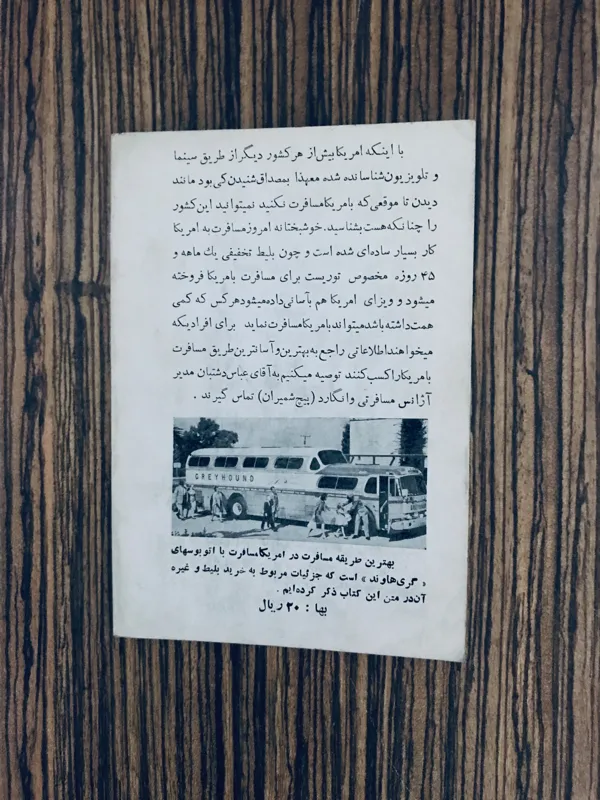 با اینکه امریکا بیش از هر کشور دیگر از طریق سینما
و تلویزیون شناسانده شده معهذا بمصداق شنیدن کی بود مانند
دیدن تا موقعی که بامریکا مسافرت نکنید نمیتوانید این کشور
را چنانکه هست بشناسید. خوشبختانه امروز مسافرت به امریکا
کار بسیار ساده‌ای شده است و چون بلیط تخفیفی یك ماهه و
۴۵ روزه مخصوص توریست برای مسافرت بامریکا فروخته
میشود و ویزای امریکا هم بآسانی داده میشود هر کس که کمی
همت داشته باشد میتواند بامریکا مسافرت نماید برای افرادیکه
میخواهند اطلاعاتی راجع به بهترین و آسانترین طریق مسافرت
بامریکا را کسب کنند توصیه میکنیم به آقای عباس دشتبان مدیر
آژانس مسافرتی وانگارد (پیچ شمیران) تماس گیرند .
GREYHOUND
بهترین طریقه مسافرت در امریکا مسافرت با اتوبوسهای
« گری هاوند » است که جزئیات مربوط به خرید بلیط و غیره
آن در متن این کتاب ذکر کرده‌ایم .
بها : ۲۰ ریال